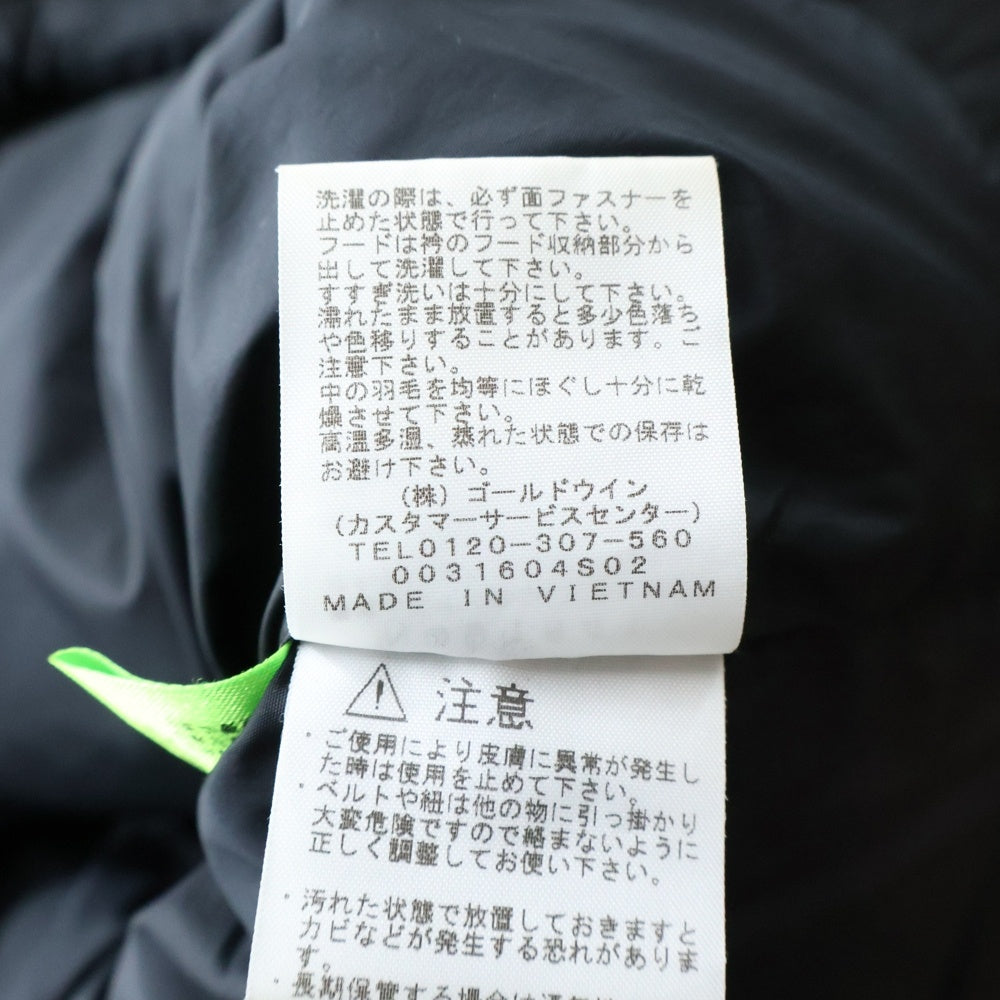 洗濯の際は、必ず面ファスナーを
止めた状態で行って下さい。
フードは衿のフード収納部分から
出して洗濯して下さい。
すすぎ洗いは十分にして下さい。
濡れたまま放置すると多少色落ち
や色移りすることがあります。ご
注意下さい。
中の羽毛を均等にほぐし十分に乾
燥させて下さい。
高温多湿、蒸れた状態での保存は
お避け下さい。
(株)ゴールドウイン
(カスタマーサービスセンター)
TEL0120-307-560
0031604S02
MADE IN VIETNAM
注意
・ご使用により皮膚に異常が発生し
た時は使用を止めて下さい。
・ベルトや紐は他の物に引っ掛かり
大変危険ですので絡まないように
正しく調整してお使い下さい。
・汚れた状態で放置しておきますと
カビなどが発生する恐れがありま
す。
・長期保管する場合は通気